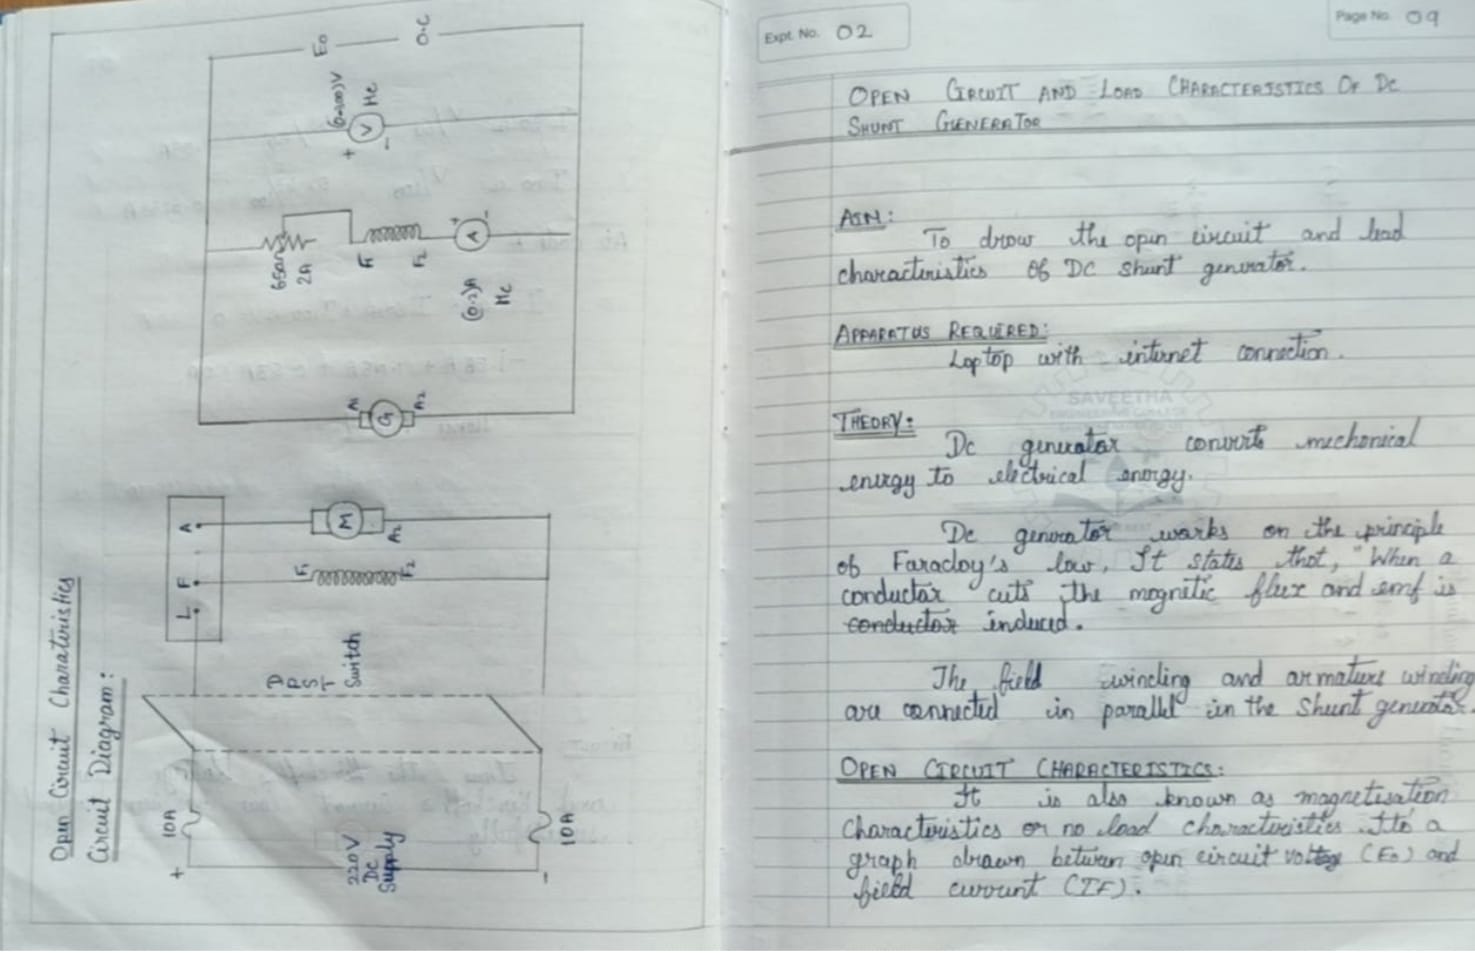 Open Circuit Charateristics
Circuit Diagram:
+
10A
220V
DC
Supply
-
10A
DPST
Switch
L F A
F1 F2
M
A2
A1
G
A2
650Ω
2A
F1
F2
+
A
-
(0-2)A
MC
(0-300)V
MC
+
V
-
E0
O.C
Expt. No. 02
Page No. 09
OPEN CIRCUIT AND LOAD CHARACTERISTICS OF DC
SHUNT GENERATOR
AIM:
To draw the open circuit and load
characteristics of DC shunt generator.
APPARATUS REQUIRED:
Laptop with internet connection.
SAVEETHA
ENGINEERING COLLEGE
THEORY:
Dc generator converts mechanical
energy to electrical energy.
Dc generator works on the principle
of Faraday's law, It states that, "When a
conductor cuts the magnetic flux and emf is
conductor induced.
The field winding and armature winding
are connected in parallel in the Shunt generator.
OPEN CIRCUIT CHARACTERISTICS:
It is also known as magnetisation
characteristics or no load characteristics. Its a
graph drawn between open circuit voltage (E0) and
field current (IF).